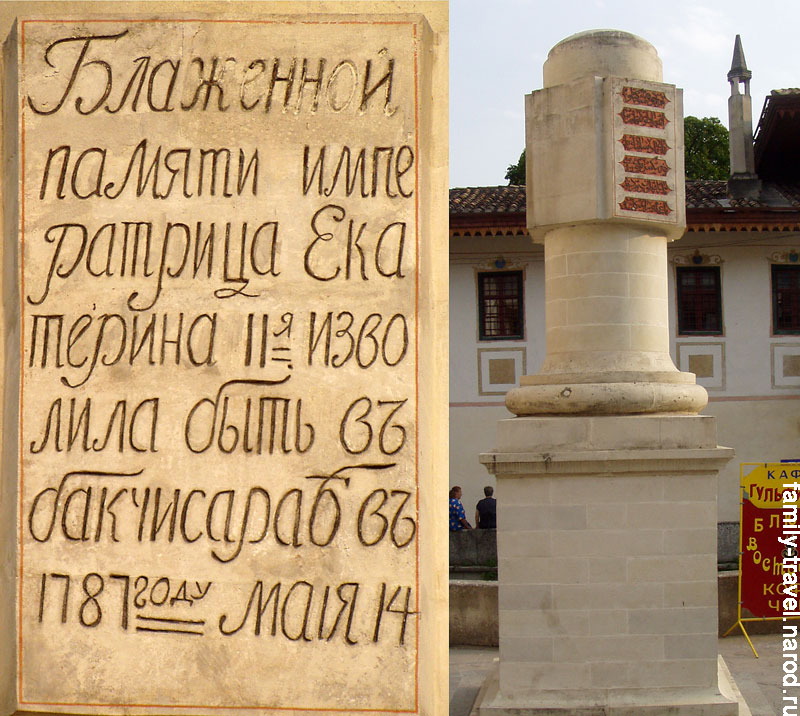 Блаженной
памяти импе
ратрица Ека
терина II я изво
лила быть въ
бакчисараѣ въ
1787 году маiя 14
КАФ
family-travel.narod.ru